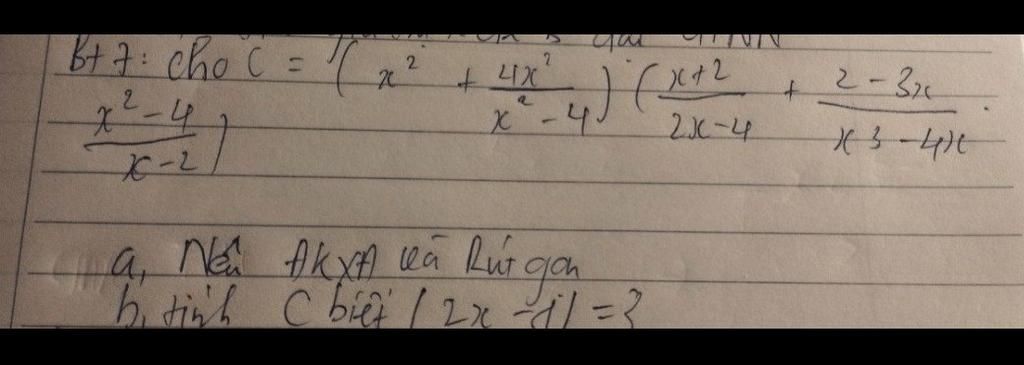 Bt 7: cho C = (x² + 4x²/(x² - 4)) · ((x+2)/(2x-4) + (2-3x)/(x3-4x) ·
(x²-4)/(x-2))
a, Nêu ĐKXĐ và Rút gọn
b, tính C biết |2x -1| = 3